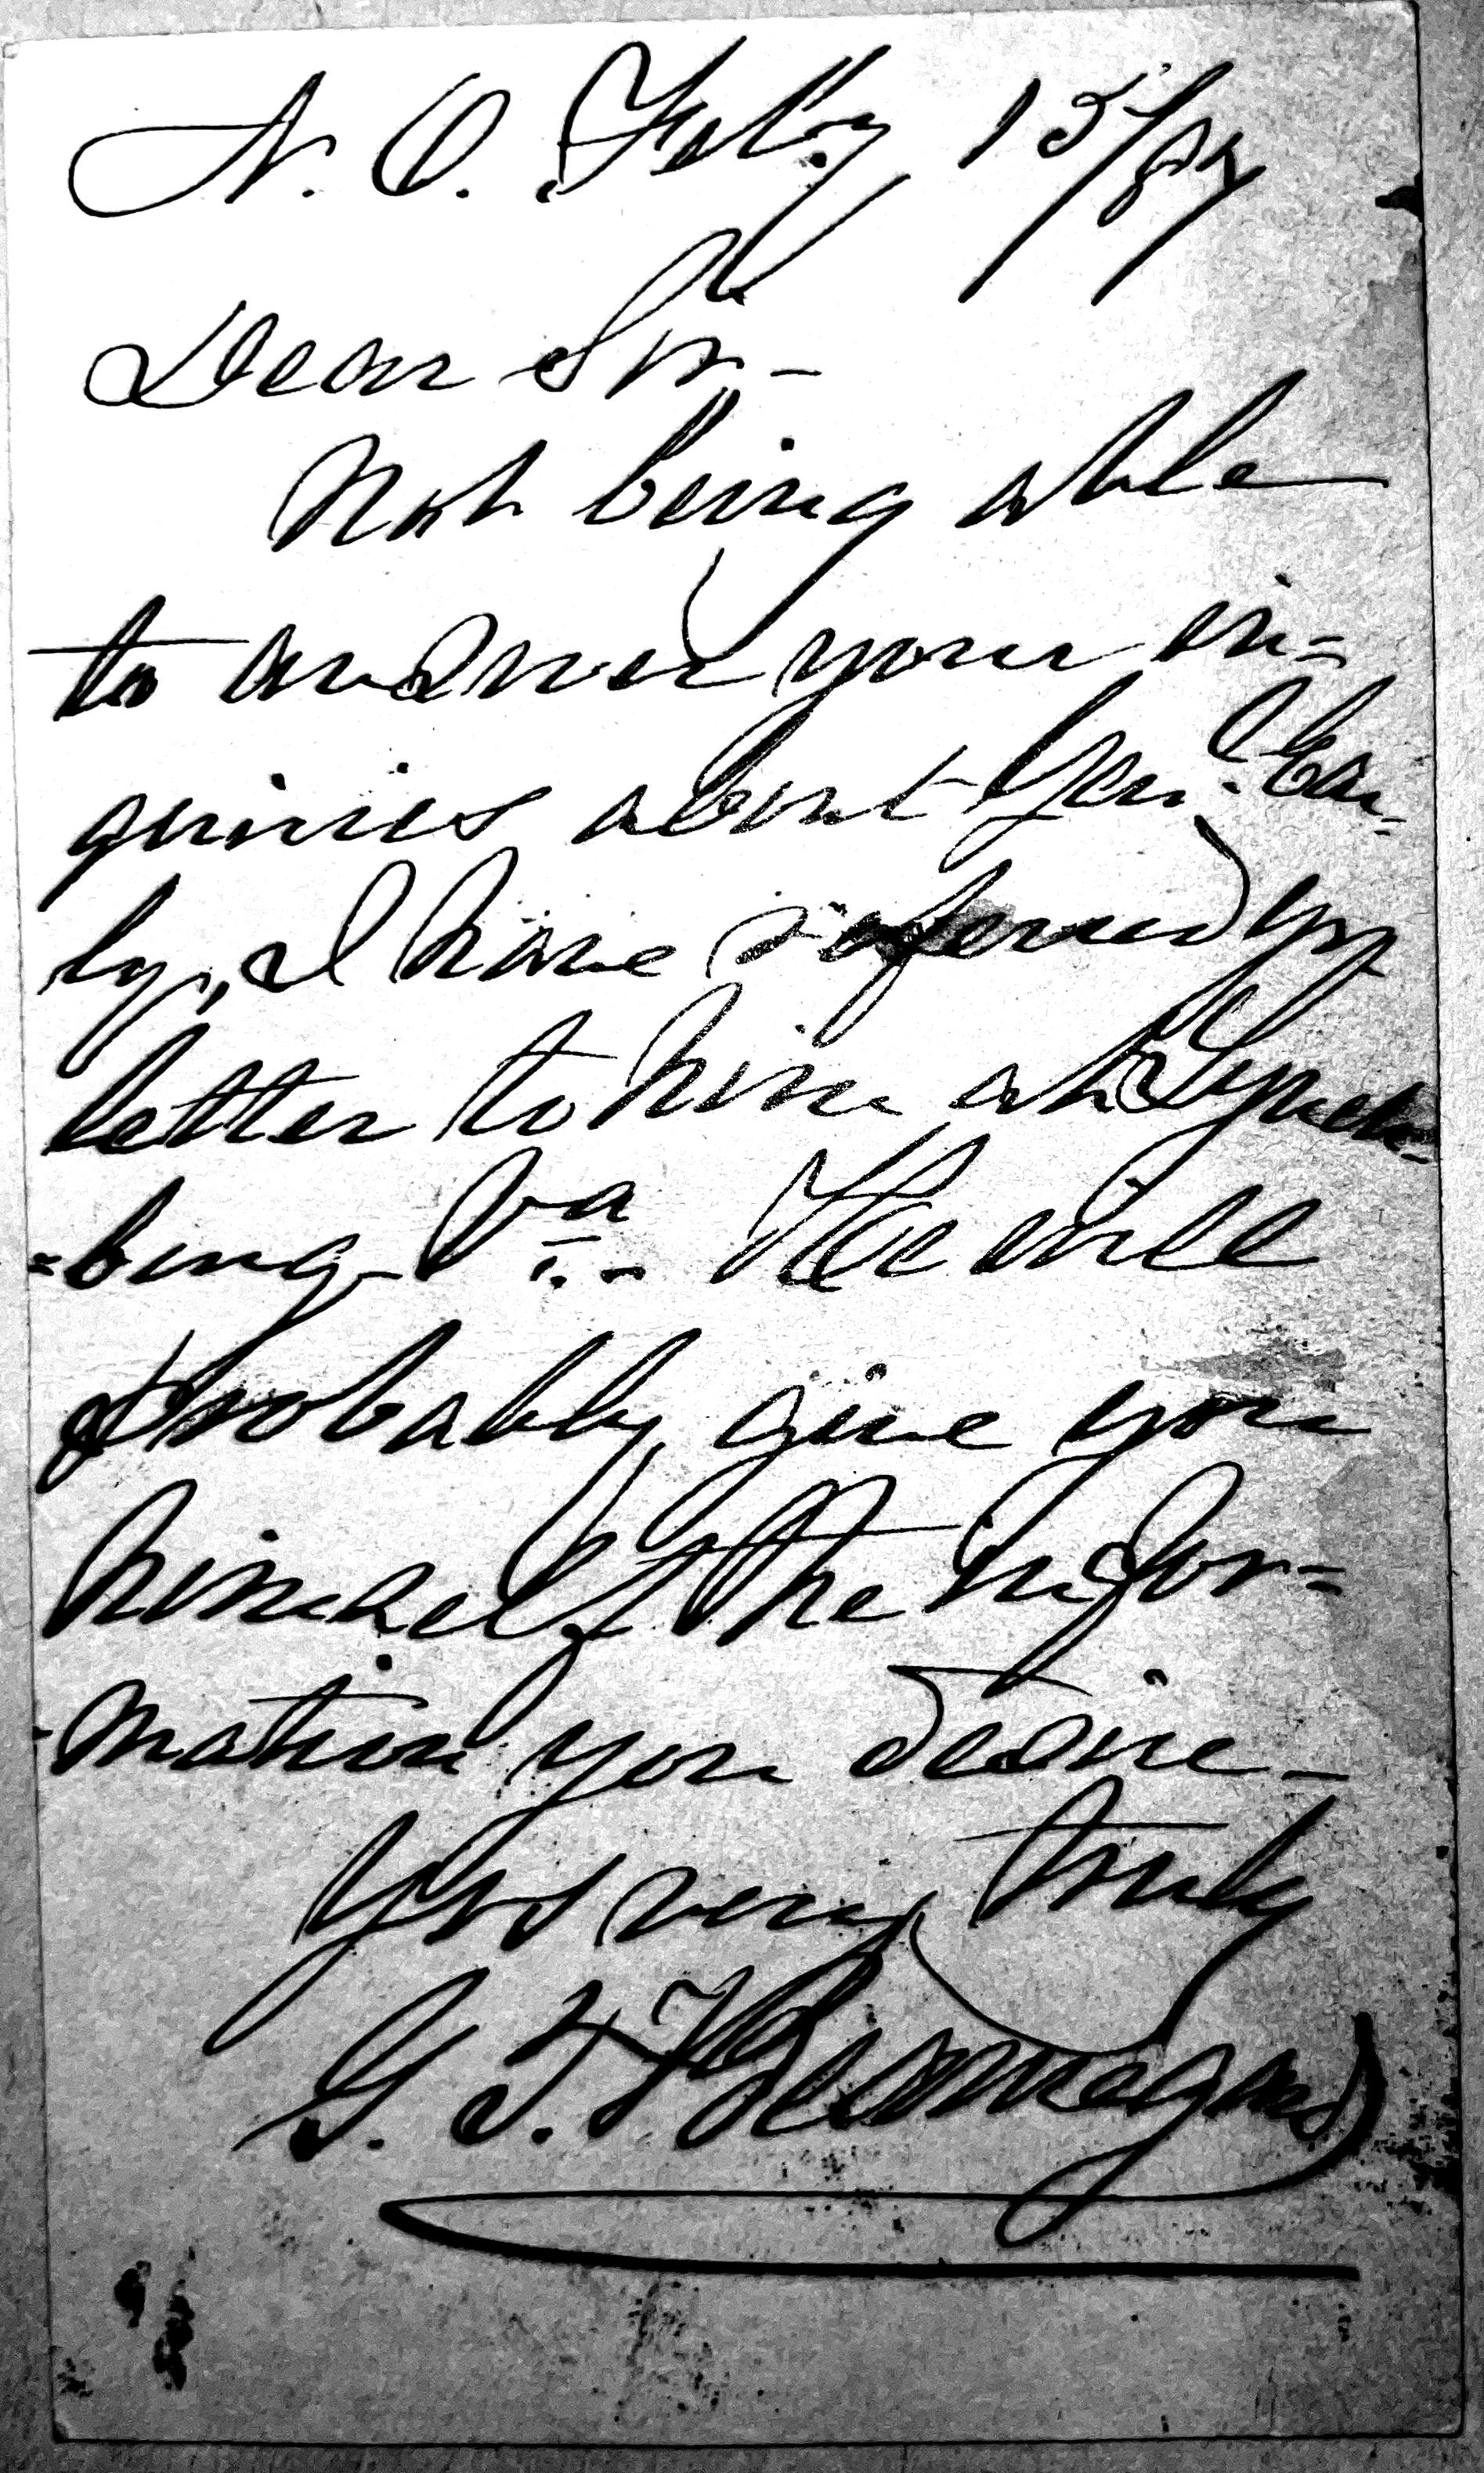 N. O. Feb'y 15/84
Dear Sir,-
Not being able
to answer your in-
quiries about Gen'l Ear-
ly, I have referred yr
letter to him at Lynch-
-burg Va.- He will
probably give you
himself the infor-
-mation you desire-
Yrs very truly
G. T. Beauregard